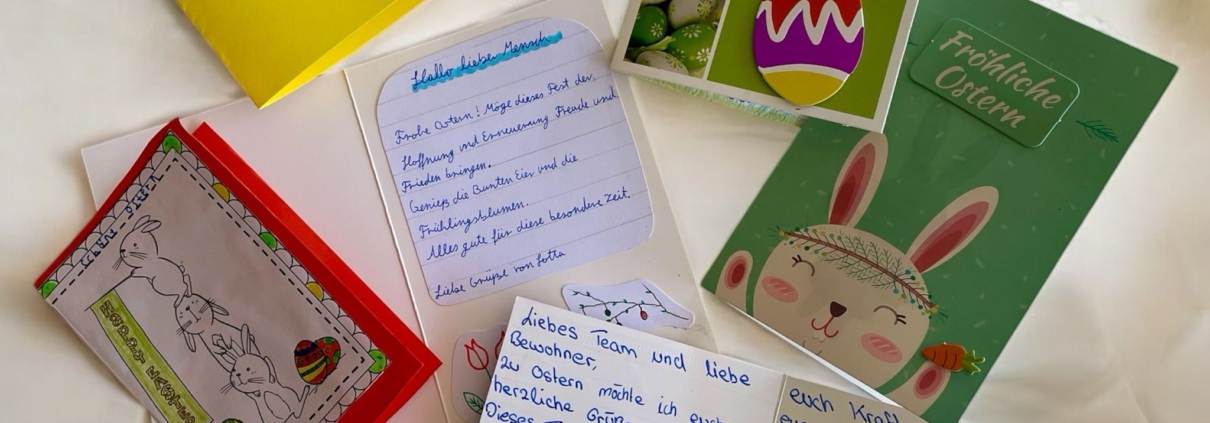 Hallo lieber Mensch
Frohe Ostern! Möge dieses Fest der
Hoffnung und Erneuerung Freude und
Frieden bringen.
Genieß die Bunten Eier und die
Frühlingsblumen.
Alles gute für diese besondere Zeit.
Liebe Grüße von Lotta
Fröhliche
Ostern
Liebes Team und liebe
Bewohner,
zu Ostern möchte ich euch
herzliche
Dieses
euch Kraft